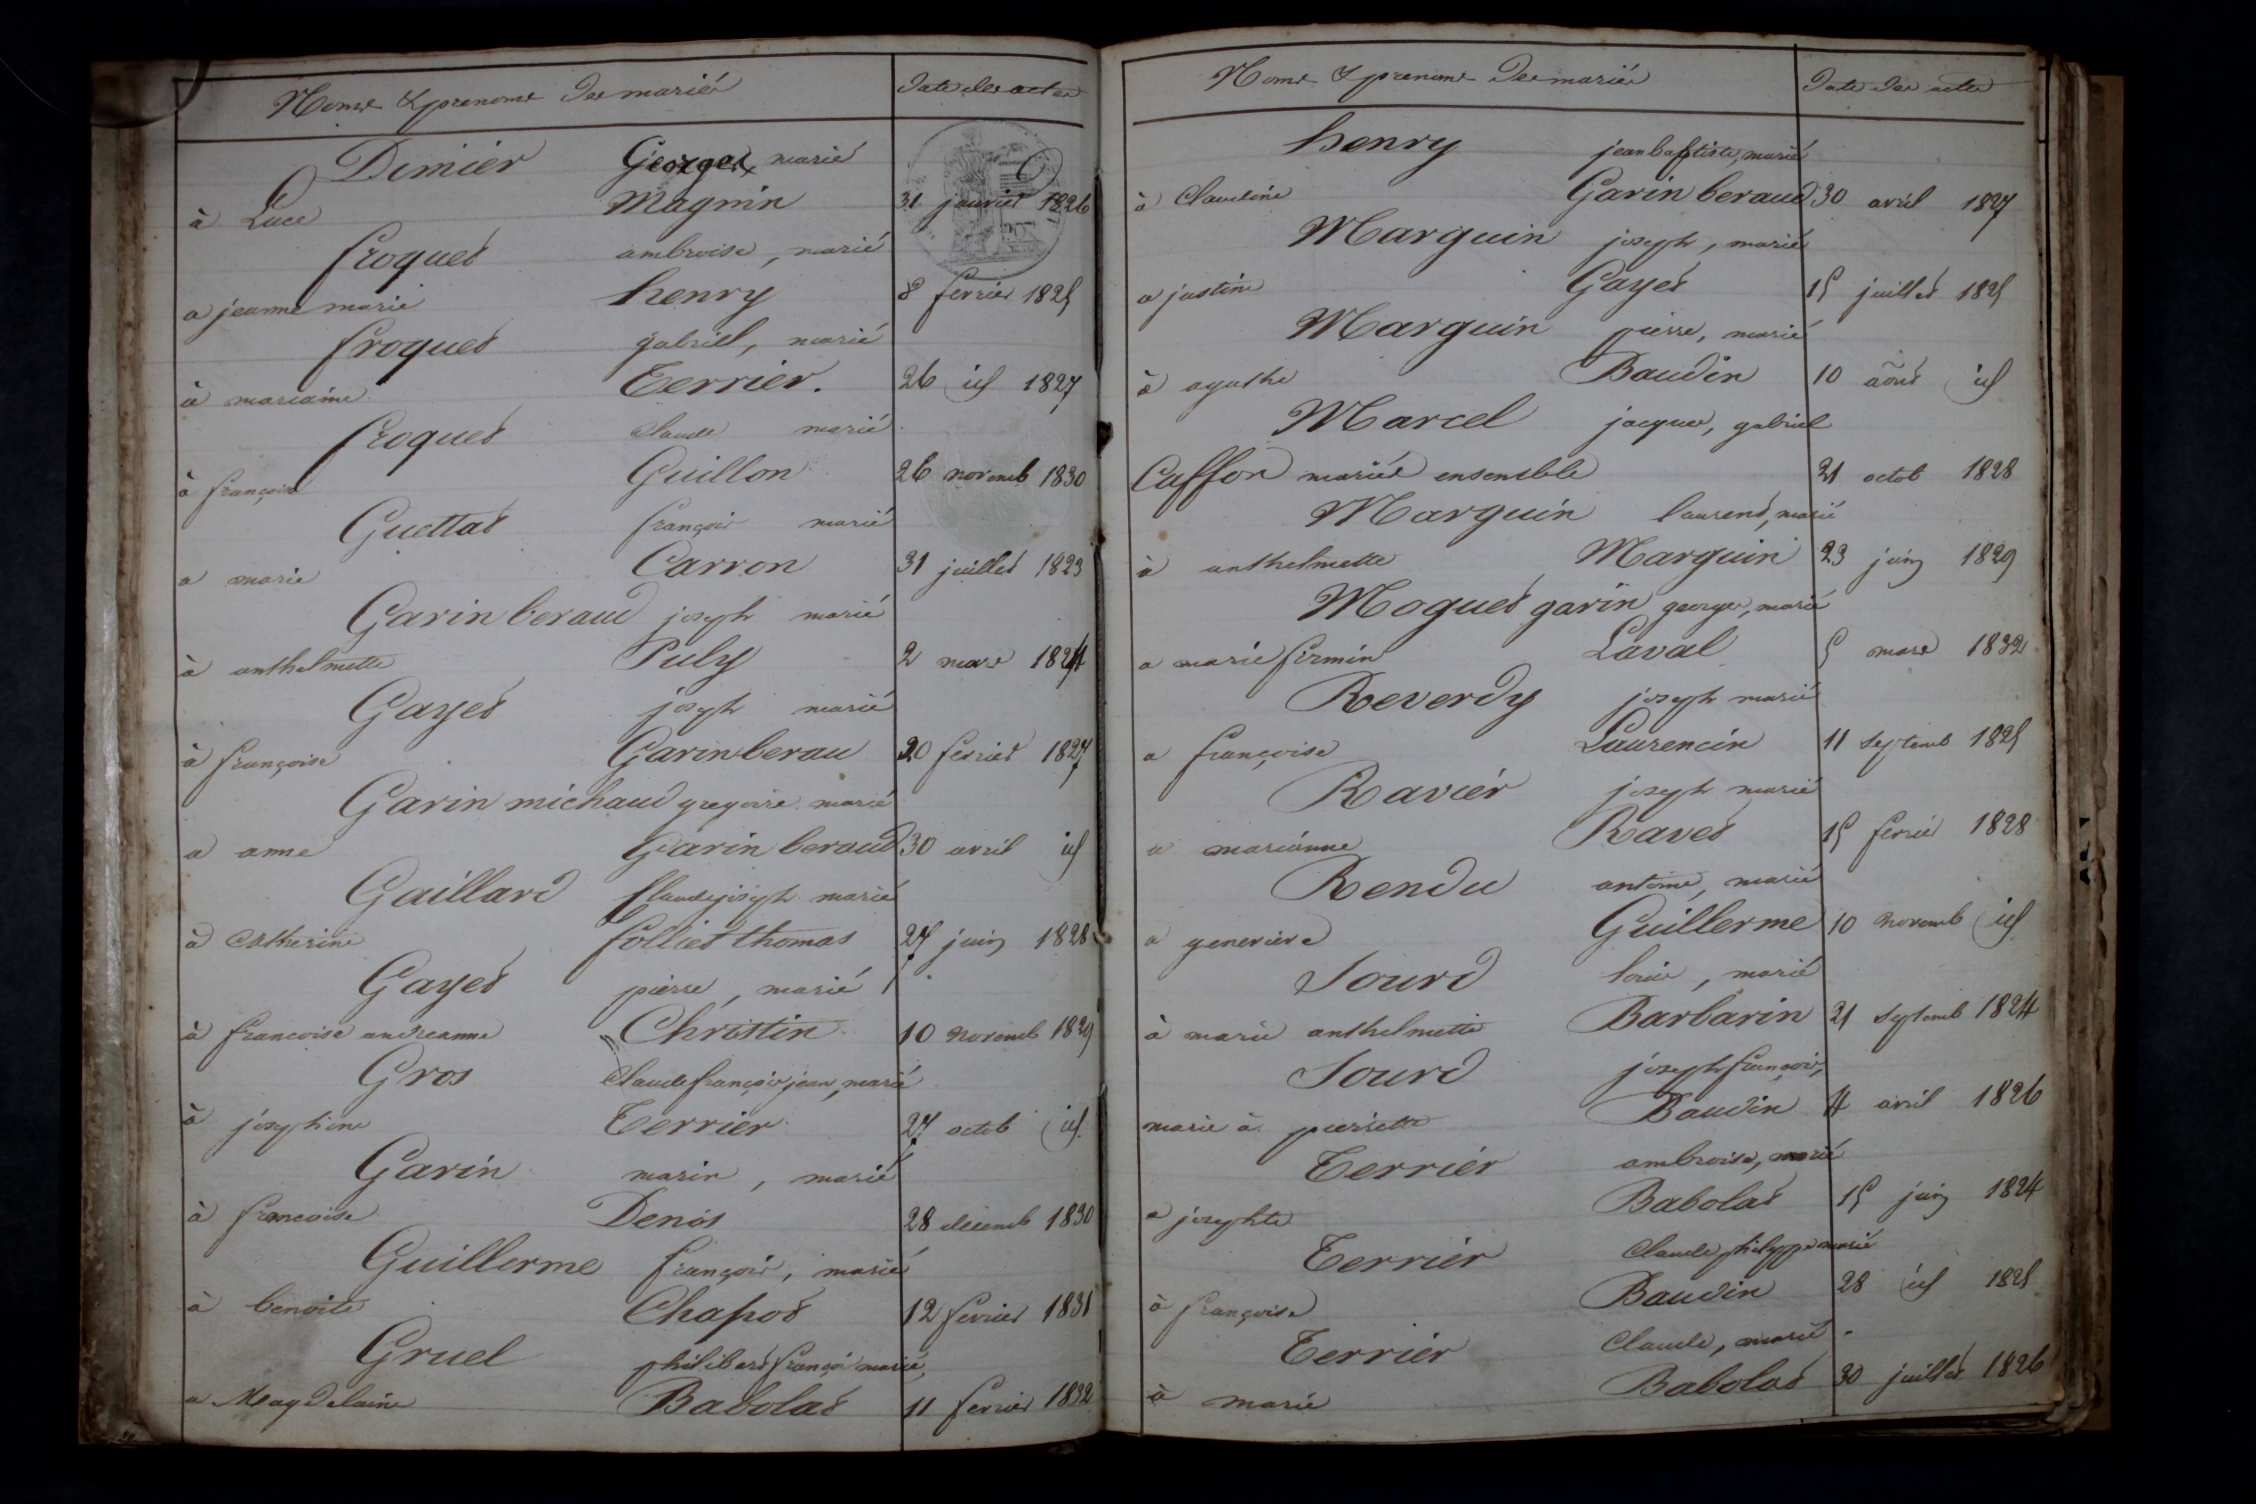 Noms & prenoms des mariés Date des actes
Dimier Georges, marié
à Luce Magnin 31 janvier 1826
froquet ambroise, marié
a jeanne marie henry 8 fevrier 1825
froquet gabriel, marié
à marianne Terrier. 26 id 1827
froquet Claude marié
à françoise Guillon 26 novemb 1830
Guettat françois marié
a marie Carron 31 juillet 1823
Garin beraud joseph marié
à anthelmette Puly 2 mars 1824
Gayet joseph marié
à françoise Garin berau 20 fevrier 1827
Garin michaud gregoire marié
a anne Garin beraud 30 avril id
Gaillard Claude joseph marié
à Catherine folliet thomas 27 juin 1828
Gayet pierre, marié
à francoise andreanne Christin 10 novemb 1829
Gros Claude françois jean, marié
à josephine Terrier 27 octob id.
Garin marin, marié
à francoise Denis 28 decemb 1830
Guillerme françois, marié
à benoite Chapot 12 fevrier 1831
Gruel philibert françois marié,
a Magdelaine Babolat 11 fevrier 1832
Noms & prenoms des mariés Date des actes
henry jean baptiste, marié
à Claudine Garin beraud 30 avril 1827
Marguin joseph, marié
a justine Gayet 15 juillet 1825
Marguin pierre, marié
à agathe Baudin 10 août id
Marcel jacques, gabriel
Caffon mariés ensemble 21 octob 1828
Marguin laurent, marié
à anthelmette Marguin 23 juin 1829
Moguet garin georges, marié
a marie firmin Laval 5 mars 1832
Reverdy joseph marié
a françoise Laurencin 11 septemb 1825
Ravier joseph marié
a marianne Ravet 15 fevrier 1828
Rendu antoine, marié
a genevieve Guillerme 10 novemb id
Sourd louis, marié
à marie anthelmette Barbarin 21 septemb 1824
Sourd joseph françois,
marié à pierrette Baudin 4 avril 1826
Terrier ambroise, marié
a josephte Babolat 15 juin 1824
Terrier Claude philippe marié
à françoise Baudin 28 id 1825
Terrier Claude, marié
à marie Babolat 30 juillet 1826